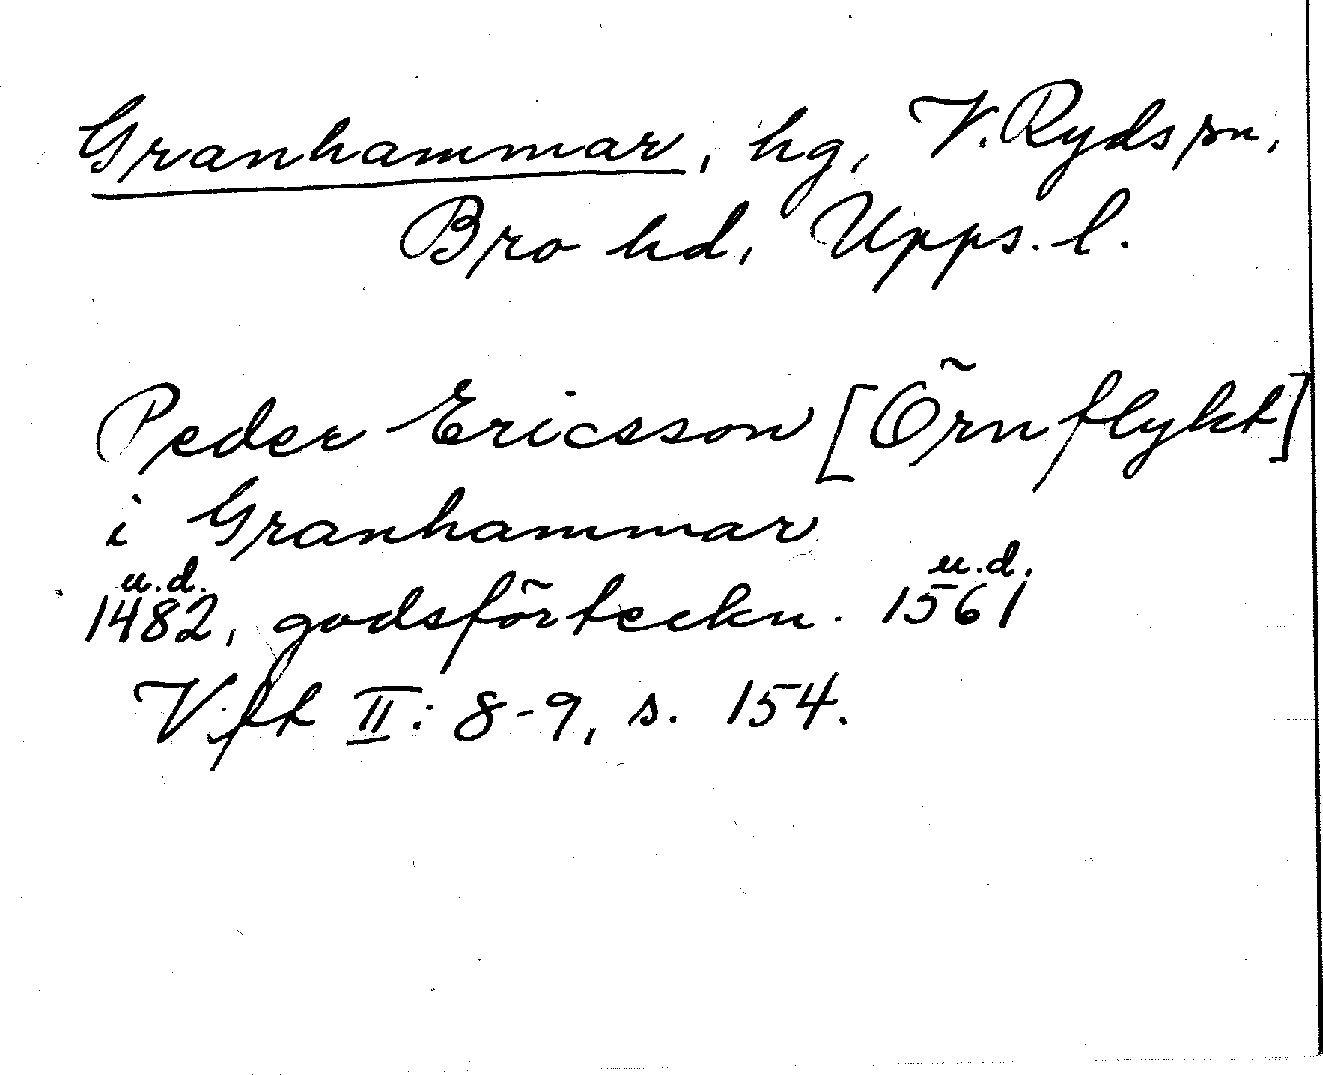 Granhammar, hg, V. Ryds sn,
Bro hd, Upps. l.
Peder Ericsson [Örnflykt]
i Granhammar
u.d. u.d.
1482, godsförteckn. 1561
Vfh II: 8-9, s. 154.